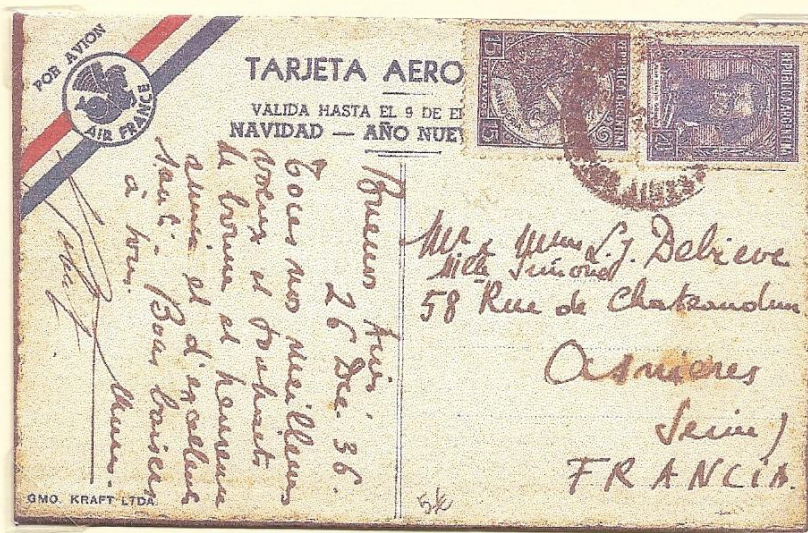 POR AVION
AIR FRANCE
TARJETA AERO
VALIDA HASTA EL 9 DE E
NAVIDAD — AÑO NUE
15 CENTAVOS 15
REPUBLICA ARGENTINA
REPUBLICA ARGENTINA
Buenos Aires
26 Dec. 36.
Tous nos meilleurs
voeux et souhaits
de bonne et heureuse
année et d'excellente
santé. Bons baisers
à tous.
Mr & Mme L. J. Debieve
Melle Simone
58 Rue de Chateaudun
Asnieres
(Seine)
FRANCIA.
GMO. KRAFT LTDA.
5€